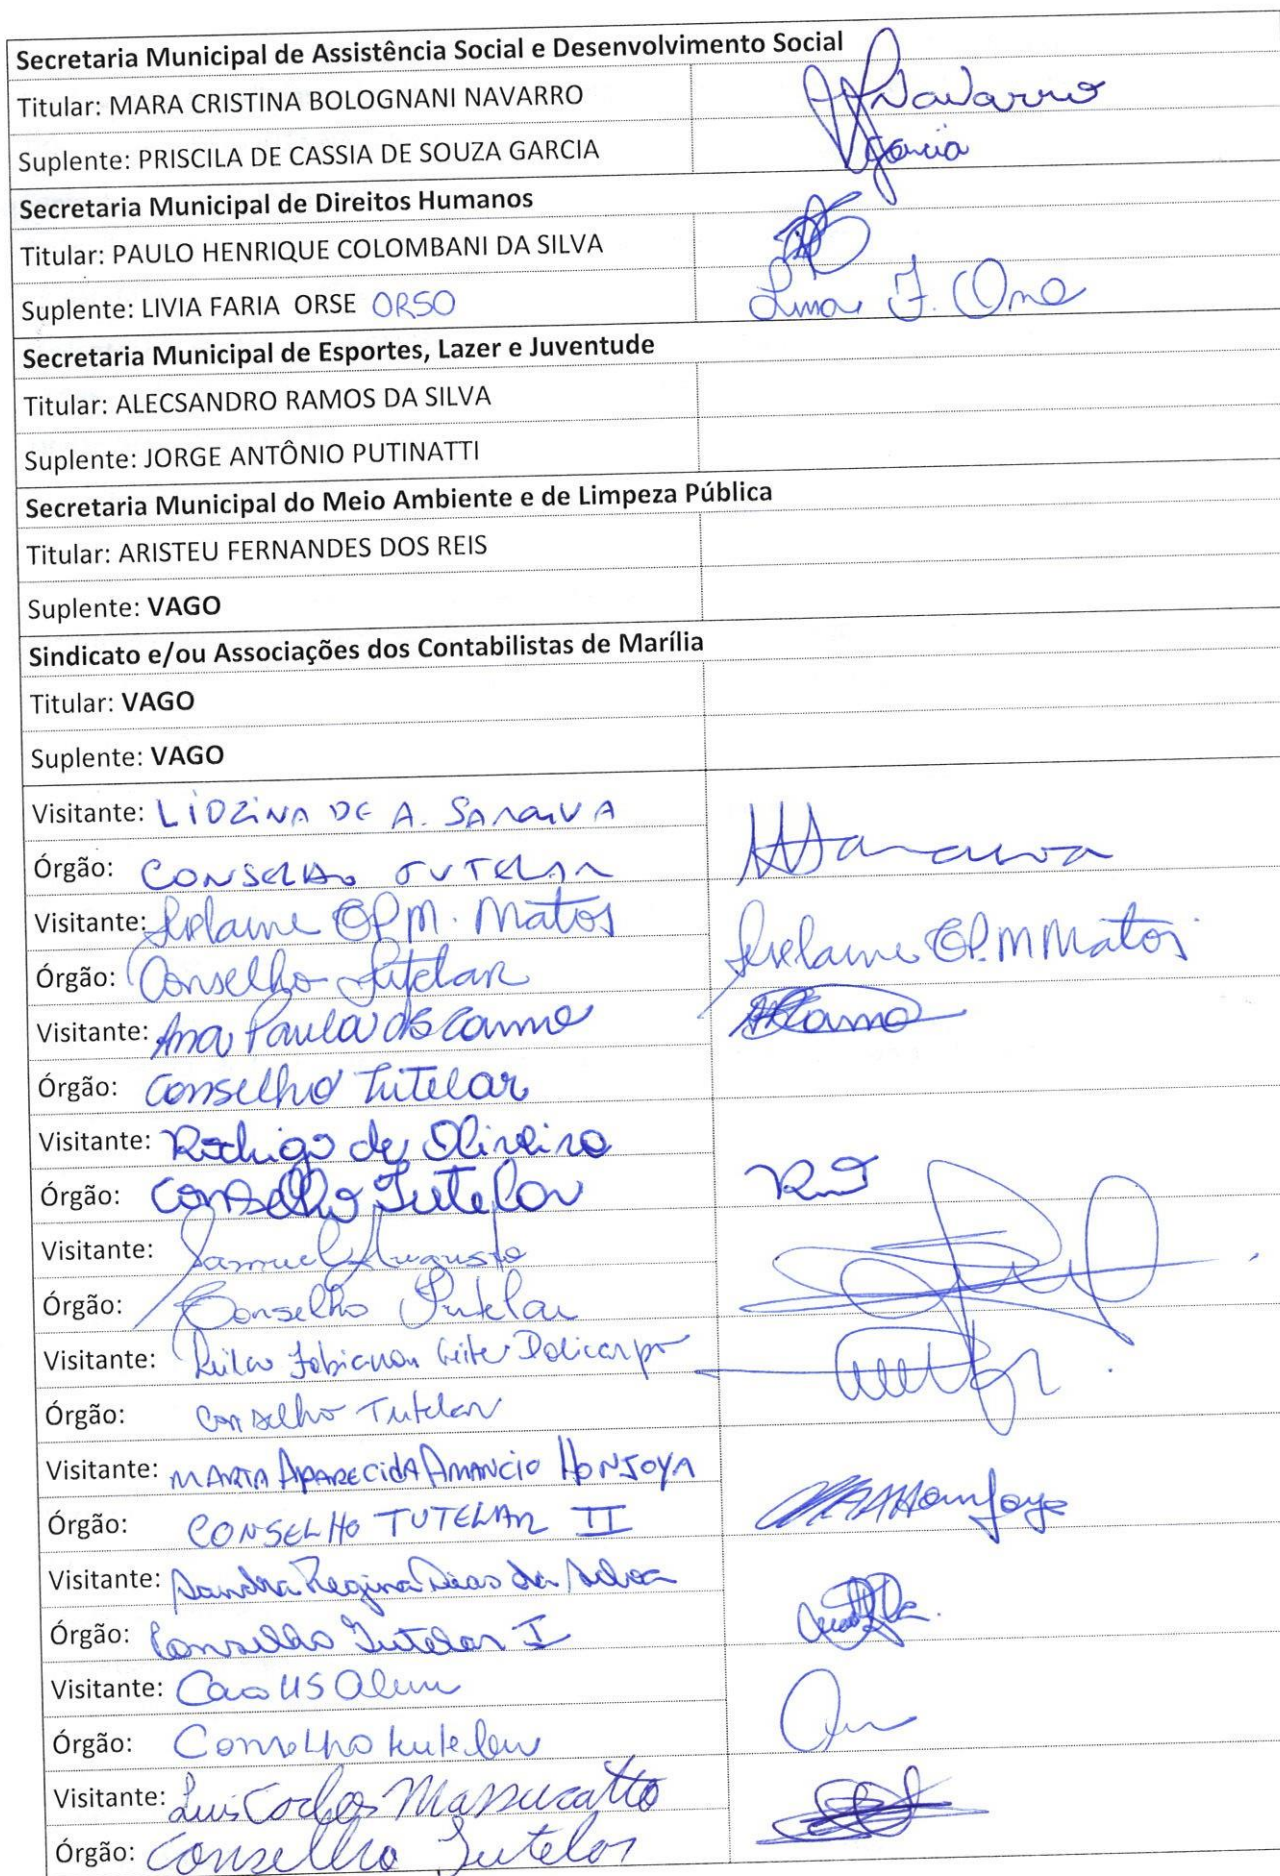 Secretaria Municipal de Assistência Social e Desenvolvimento Social
Titular: MARA CRISTINA BOLOGNANI NAVARRO Navarro
Suplente: PRISCILA DE CASSIA DE SOUZA GARCIA Garcia
Secretaria Municipal de Direitos Humanos
Titular: PAULO HENRIQUE COLOMBANI DA SILVA
Suplente: LIVIA FARIA ORSE ORSO
Secretaria Municipal de Esportes, Lazer e Juventude
Titular: ALECSANDRO RAMOS DA SILVA
Suplente: JORGE ANTÔNIO PUTINATTI
Secretaria Municipal do Meio Ambiente e de Limpeza Pública
Titular: ARISTEU FERNANDES DOS REIS
Suplente: VAGO
Sindicato e/ou Associações dos Contabilistas de Marília
Titular: VAGO
Suplente: VAGO
Visitante: LIDZINA DE A. SARAIVA
Órgão: CONSELHO TUTELAR
Visitante: M. Matos
Órgão: Conselho Tutelar
Visitante: Ana Paula do Carmo
Órgão: Conselho Tutelar
Visitante: Rodrigo de Oliveira
Órgão: Conselho Tutelar
Visitante: Samuel Augusto
Órgão: Conselho Tutelar
Visitante: Leite Policarpo
Órgão: Conselho Tutelar
Visitante: MARIA APARECIDA AMANCIO HONJOYA
Órgão: CONSELHO TUTELAR II
Visitante: Sandra Regina Dias da Silva
Órgão: Conselho Tutelar I
Visitante:
Órgão: Conselho tutelar
Visitante: Luis Carlos Massucatto
Órgão: Conselho Tutelar